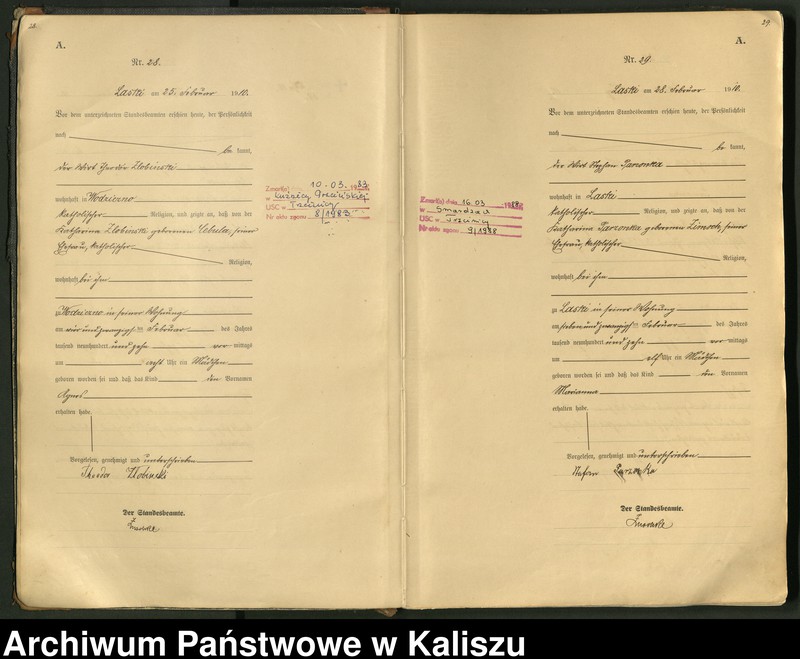 28
A.
Nr. 28.
Laski am 25. Februar 1910.
Vor dem unterzeichneten Standesbeamten erschien heute, der Persönlichkeit
nach
be kannt,
der Wirt Theodor Zlobinski
wohnhaft in Wodziczno
katholischer Religion, und zeigte an, daß von der
Katharina Zlobinski geborenen Cebula, seiner
Ehefrau, katholischer
Religion,
wohnhaft bei ihm
zu Wodziczno in seiner Wohnung
am vierundzwanzigsten Februar des Jahres
tausend neunhundert und zehn vor mittags
um acht Uhr ein Mädchen
geboren worden sei und daß das Kind den Vornamen
Agnes
erhalten habe.
Vorgelesen, genehmigt und unterschrieben
Theodor Zlobinski
Der Standesbeamte.
Zmarł(a) 10.03.1983
w Kuźnicy Grabowskiej
USC w
Nr aktu zgonu 8/1983
29
A.
Nr. 29.
Laski am 28. Februar 1910.
Vor dem unterzeichneten Standesbeamten erschien heute, der Persönlichkeit
nach
be kannt,
der Wirt Stephan Parzonka
wohnhaft in Laski
katholischer Religion, und zeigte an, daß von der
Katharina Parzonka geborenen Zimoch, seiner
Ehefrau, katholischer
Religion,
wohnhaft bei ihm
zu Laski in seiner Wohnung
am siebenundzwanzigsten Februar des Jahres
tausend neunhundert und zehn vor mittags
um elf Uhr ein Mädchen
geboren worden sei und daß das Kind den Vornamen
Marianna
erhalten habe.
Vorgelesen, genehmigt und unterschrieben
Stefan Parzonka
Der Standesbeamte.
Zmarł(a) dnia 16.03 1988
w Smardze
USC w Trzcinicy
Nr aktu zgonu 9/1988
Archiwum Państwowe w Kaliszu